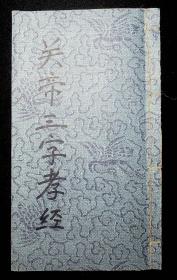 关帝三字孝经